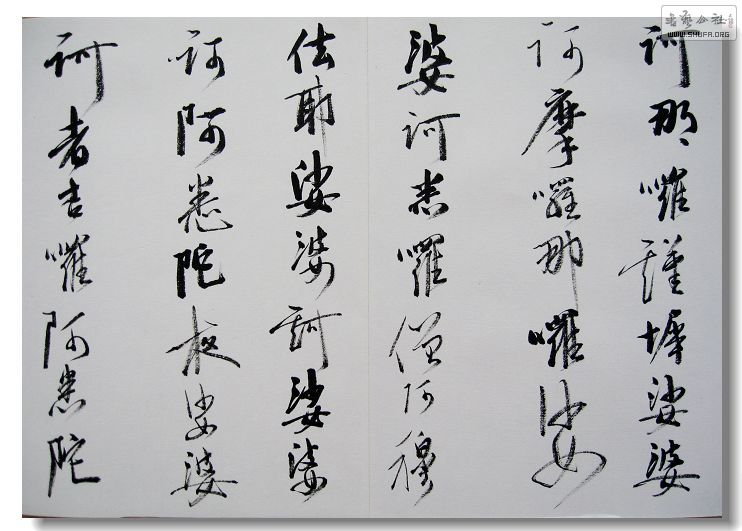 訶那囉謹墀娑婆
訶摩囉那囉娑
婆訶悉囉僧阿穆
佉耶娑婆訶娑婆
訶阿悉陀夜娑婆
訶者吉囉阿悉陀
WWW.SHUFA.ORG